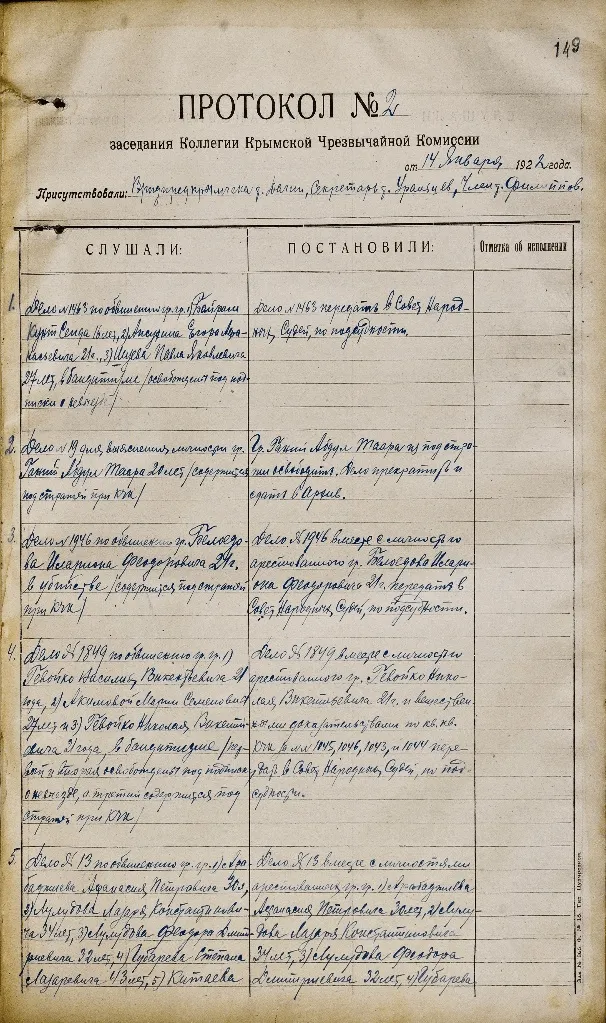 149
ПРОТОКОЛ № 2
заседания Коллегии Крымской Чрезвычайной Комиссии
от 14 Января 1922 года.
Присутствовали: Секретарь т. Уральцев, Член т. Филиппов.
СЛУШАЛИ:
ПОСТАНОВИЛИ:
Отметка об исполнении
1. Дело №1463 по обвинению гр.гр. 1) Байрам
Курт Сеида 16 лет, 2) Егора
21 г., 3) Павла Яковлевича
27 лет, в бандитизме /освобождены под под-
писки о невыезде/
Дело №1463 передать в Совет Народ-
ных Судей, по подсудности.
2. Дело №19 для выяснения личности гр.
Абдул Таара 20 лет /содержится
под стражей при КЧК/
Гр. Абдул Таара из под стра-
жи освободить. Дело прекратить и
сдать в Архив.
3. Дело №1946 по обвинению гр. Белоедо-
ва Илариона Феодоровича 21 г.
в убийстве /содержится под стражей
при КЧК/
Дело №1946 вместе с личностью
арестованного гр. Белоедова Илари-
она Феодоровича 21 г. передать в
Совет Народных Судей, по подсудности.
4. Дело №1849 по обвинению гр.гр. 1)
Гевойко Василия Викентьевича 21
года, 2) Акимовой Марии Семеновны
27 лет и 3) Гевойко Николая Викенть-
евича 21 года, в бандитизме /пер-
вый и вторая освобождены под подписку
о невыезде, а третий содержится под
стражей при КЧК/
Дело №1849 вместе с личностью
арестованного гр. Гевойко Нико-
лая Викентьевича 21 г. и веществен-
ными доказательствами по кв. кв.
КЧК за №№ 1045, 1046, 1043, и 1044 пере-
дать в Совет Народных Судей, по под-
судности.
5. Дело №13 по обвинению гр.гр. 1) Ара-
баджиева Афанасия Петровича 30 л,
2) Лулудова Лазаря Константинови-
ча 34 лет, 3) Лулудова Феодора Дмит-
риевича 32 лет, 4) Губарева Степана
Лазаревича 43 лет, 5) Китаева
Дело №13 вместе с личностями
арестованных гр.гр. 1) Арабаджиева
Афанасия Петровича 30 лет, 2) Лулу-
дова Лазаря Константиновича
34 лет, 3) Лулудова Феодора
Дмитриевича 32 лет, 4) Губарева